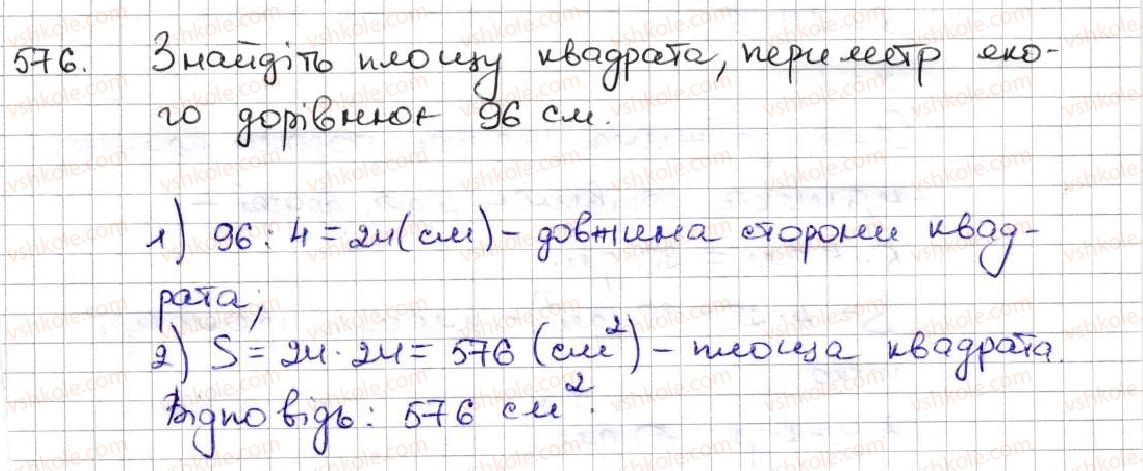 576. Знайдіть площу квадрата, периметр яко-
го дорівнює 96 см.
1) 96 : 4 = 24 (см) – довжина сторони квад-
рата;
2) S = 24 · 24 = 576 (см²) – площа квадрата.
Відповідь: 576 см².